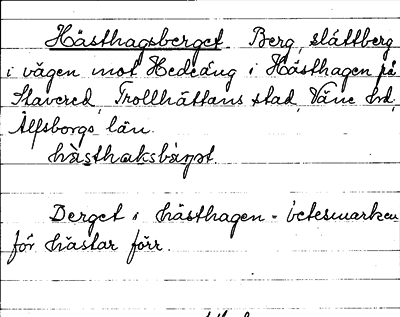 Hästhagsberget. Berg, slättberg
i vägen mot Hedeäng i Hästhagen på
Stavered, Trollhättans stad, Väne hd,
Älfsborgs län.
hàsthaksbàrjət.
Berget i hästhagen - betesmarken
för hästar förr.